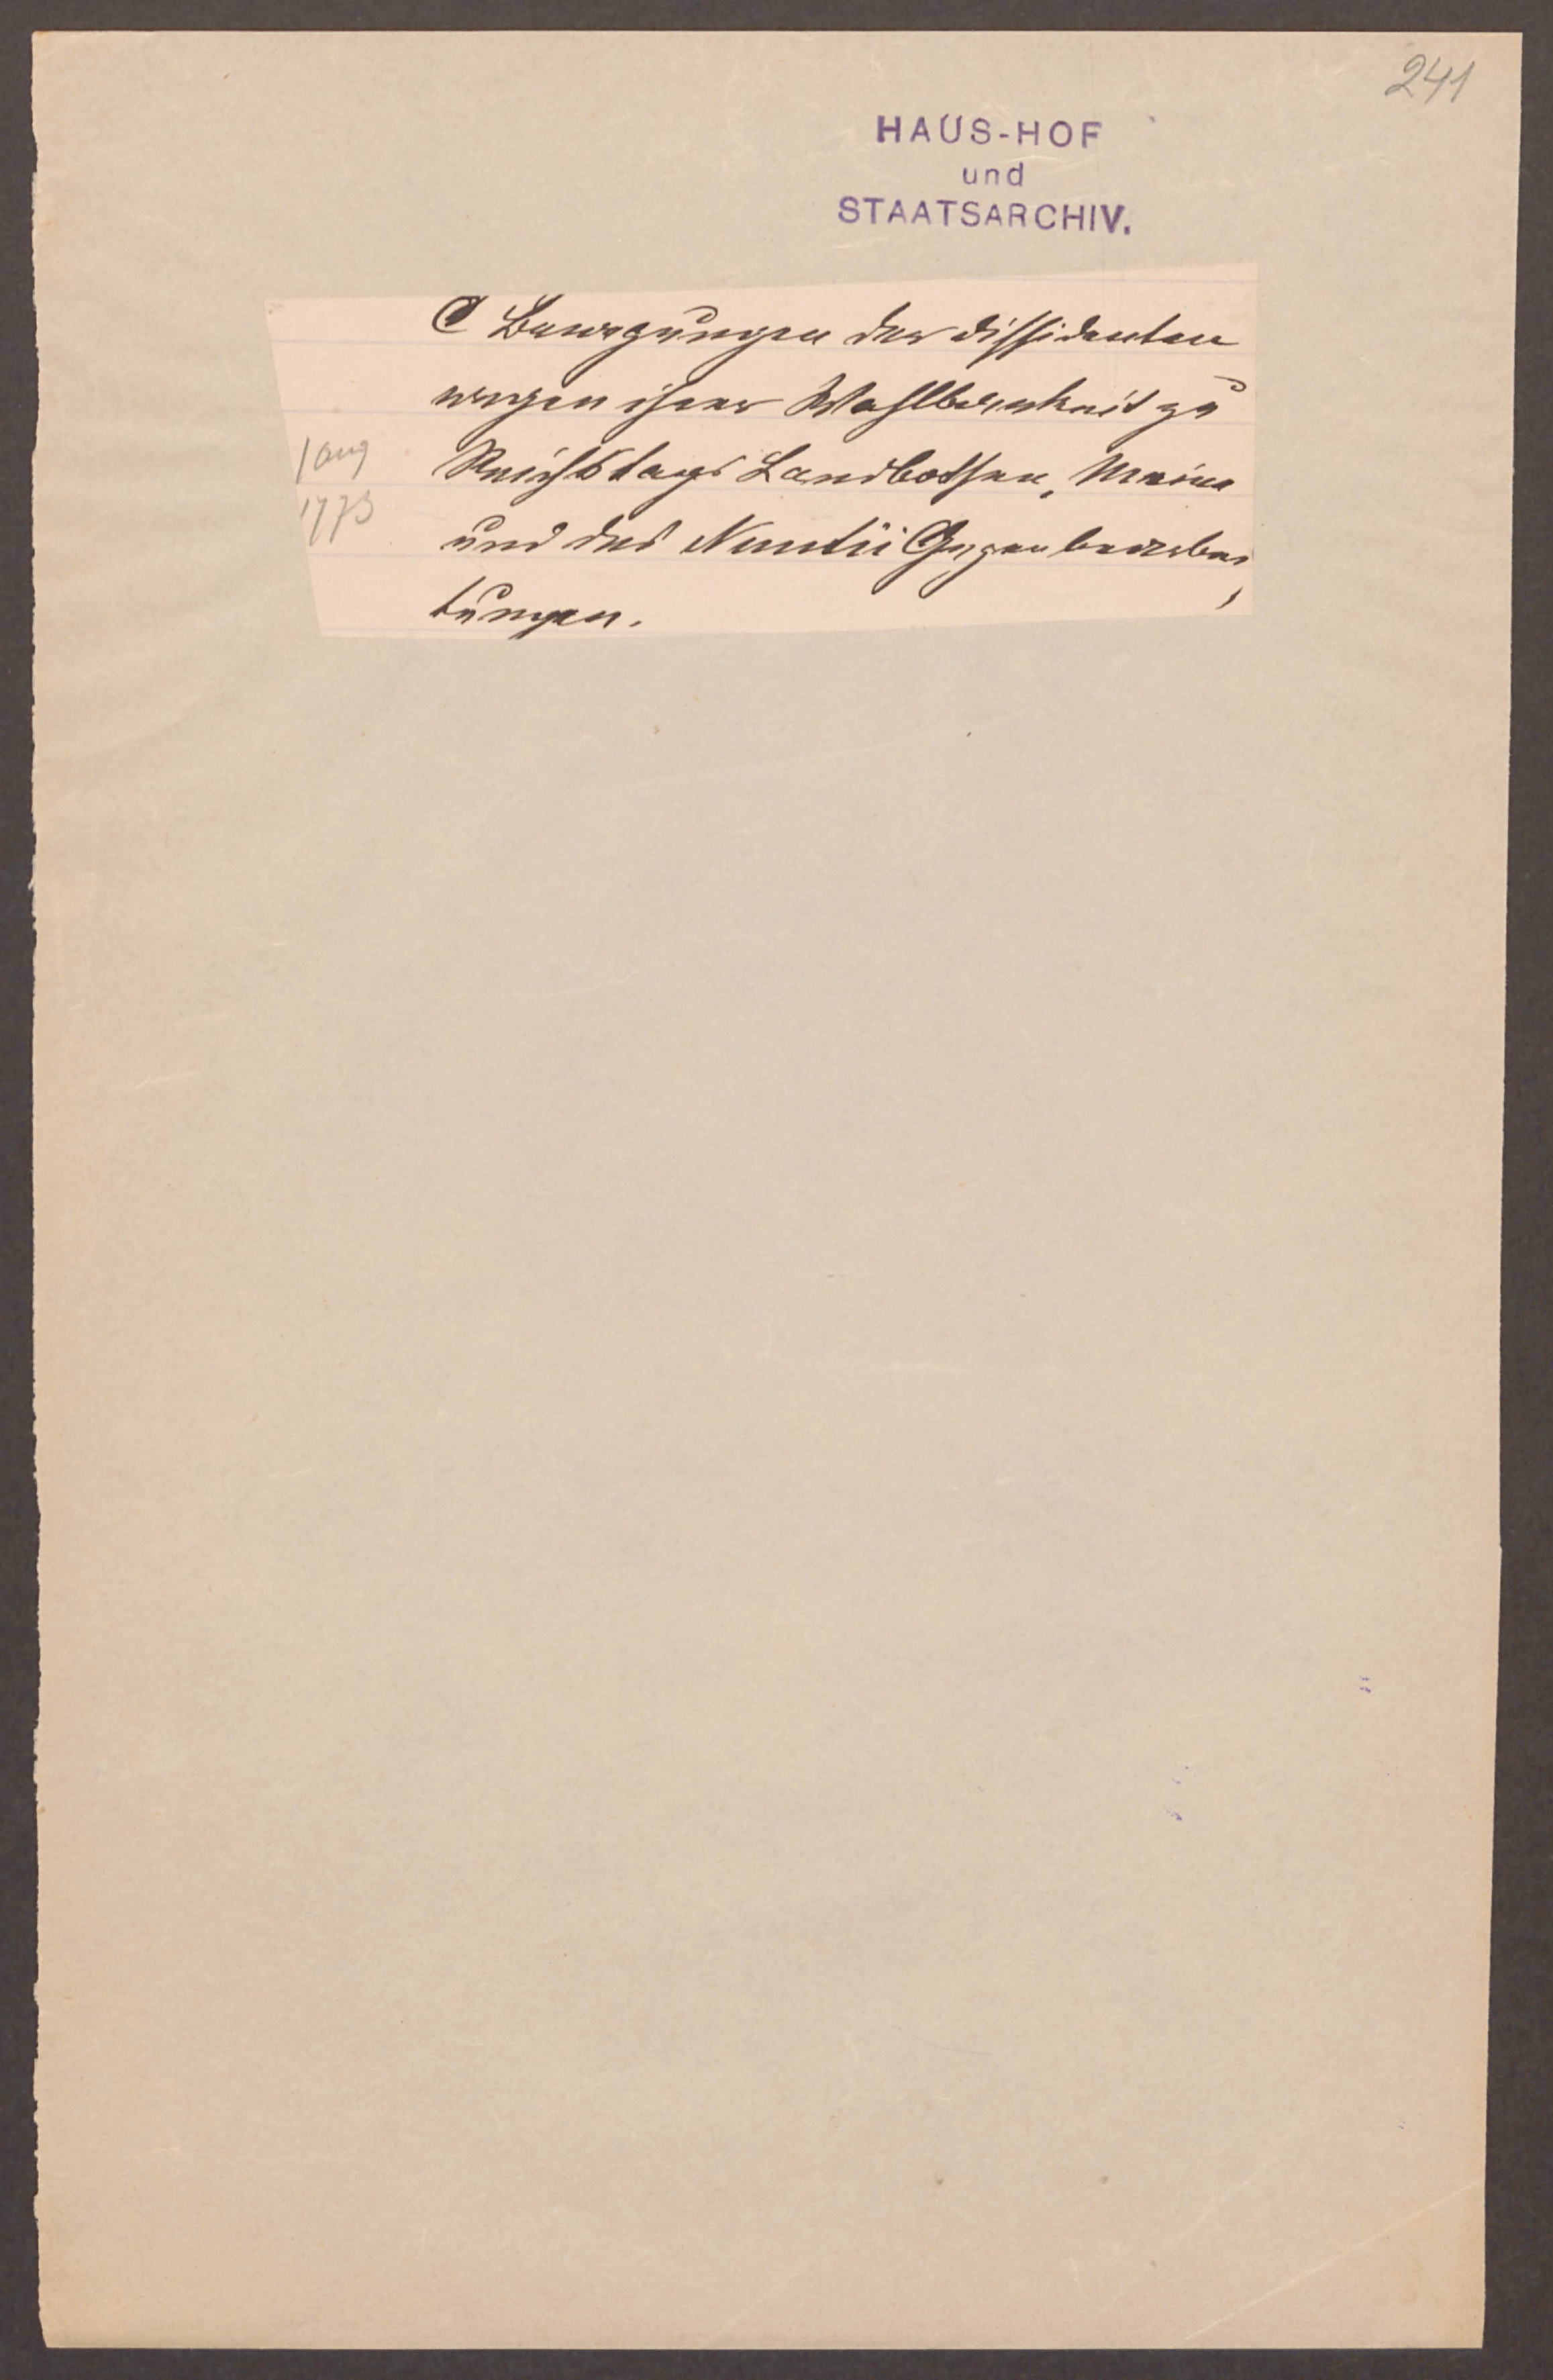 241
HAUS-HOF
und
STAATSARCHIV.
C Bewegungen der Dissidenten
wegen ihrer Wahlbarkeit zu
Reichstags Landbothen, Meine
1 Aug
1773
und des Nuntii Gegenbearbei
tungen.